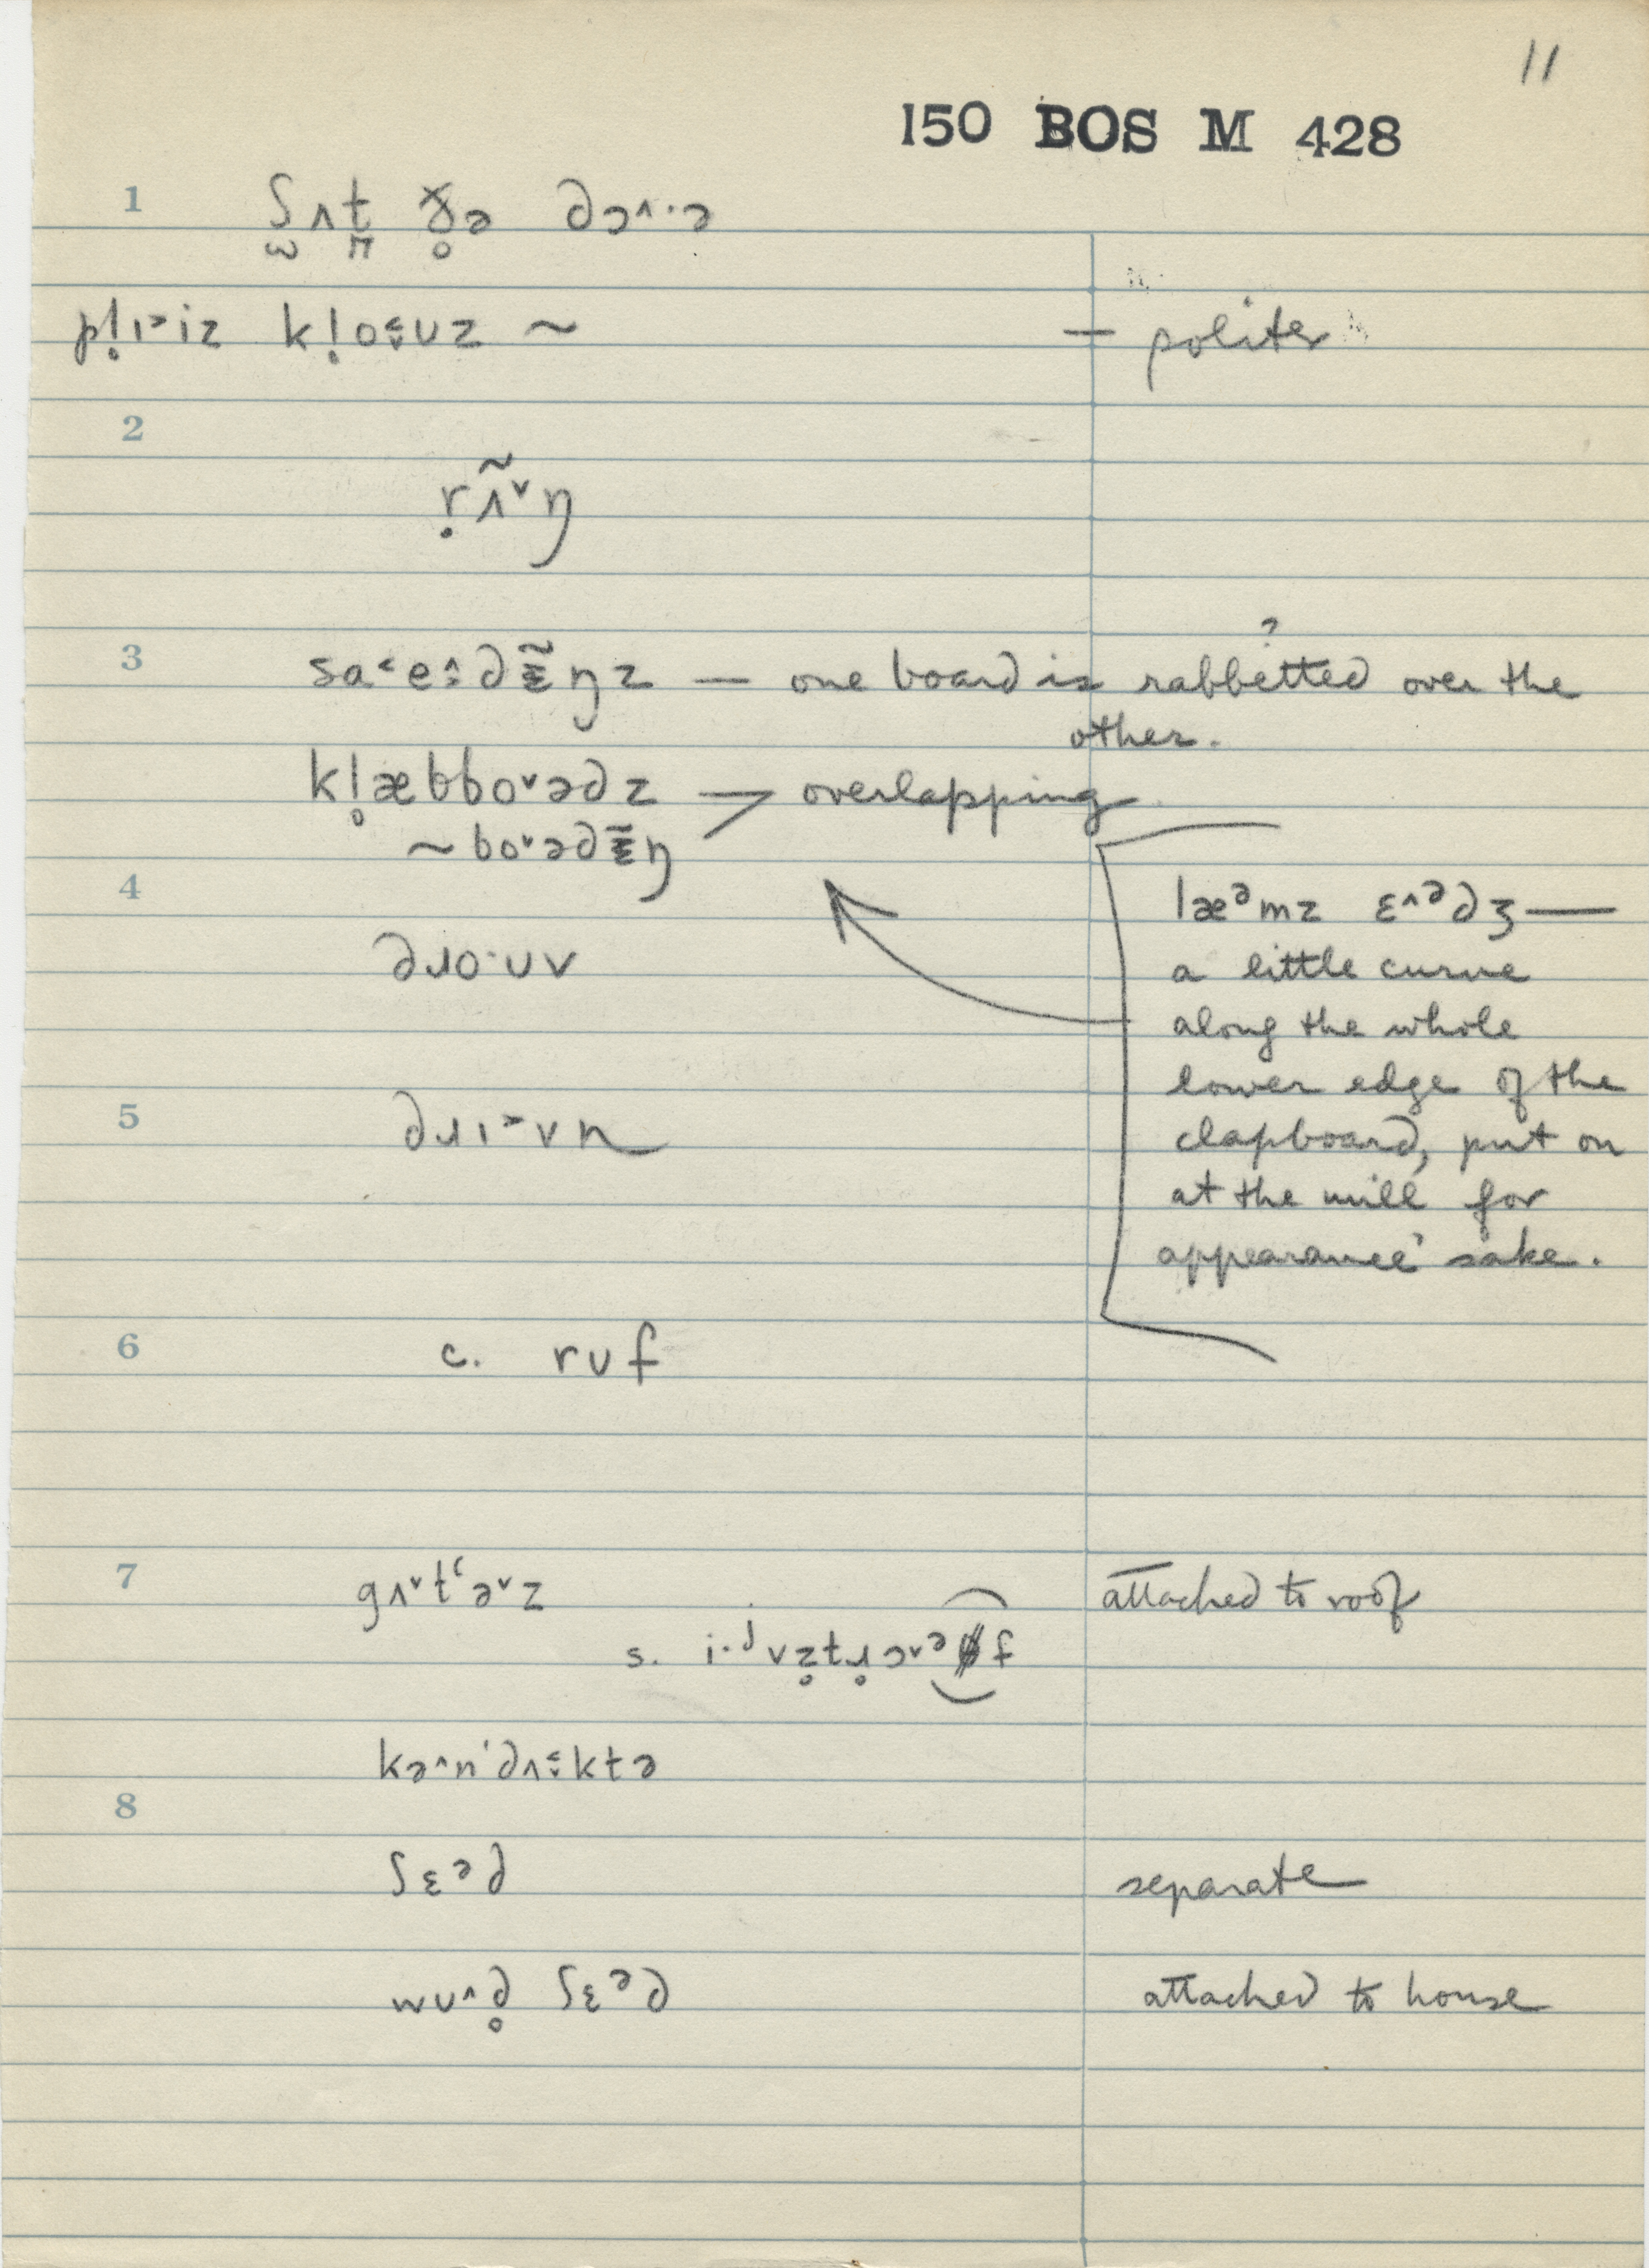 11
150 BOS M 428
1 ʃ̪ʌt̪ ɣ̥ə dɔ˄·ə
pl̥ɪ˃iz kl̥o˂ʊz ~ — politer
2
r̥ʌ̃˅ŋ
3 sa˂e˄dɪ̃ŋz — one board is rabbetted ? over the
other.
kl̥æbbo˅ədz > overlapping
~ bo˅ədɪ̃ŋ
4 læᵊmz ɛ˄ᵊdʒ —
a little curve
dɹo·ʊv
along the whole
lower edge of the
5 dɹɪ˃vn
clapboard, put on
at the mill for
appearance' sake.
6 c. rʊf
7 gʌ˅tʻə˅z attached to roof
s. i·ᶨvz̥tɹ̥ɔ˅ᵊf
kə˄n'dʌ˂ktə
8
ʃɛᵊd separate
wʊ˄d̥ ʃɛᵊd attached to house